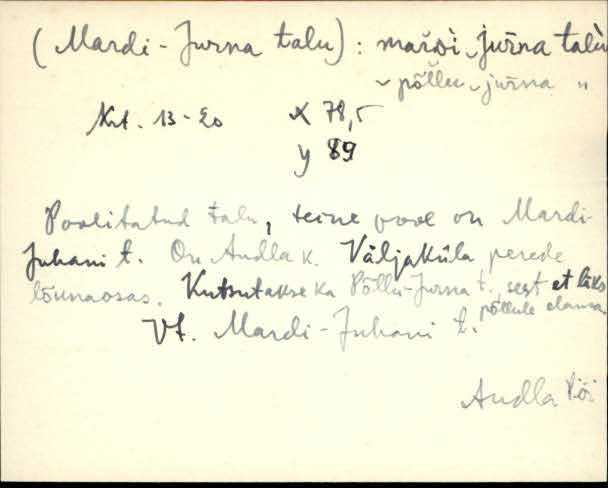 (Mardi-Jurna talu) : mardi-jurna talu
~ põllu-jurna "
Krt. 13-20 X 78,5
y 89
Poolitatud talu, teine pool on Mardi-
Juhani t. On Audla k. Väljaküla perede
lõunaosas. Kutsutakse ka Põllu-Jurna t., sest et läks
põllule elama.
Vt. Mardi-Juhani t.
Audla Pöi